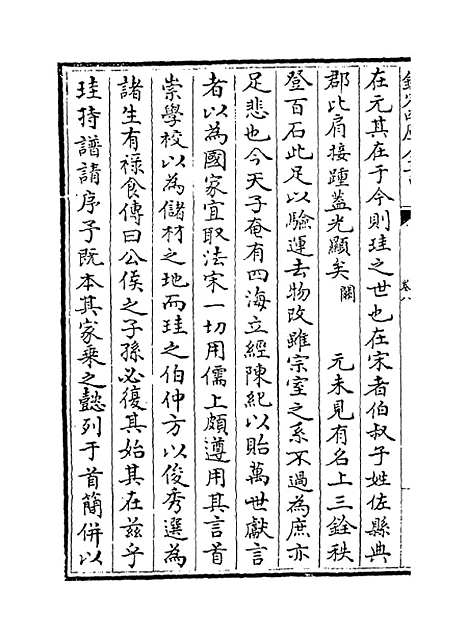 在元其在于今則珪之世也在宋者伯叔子姓佐縣典
郡比肩接踵蓋光顯矣闕元未見有名上三銓秩
登百石此足以驗運去物改雖宗室之系不過為庶亦
足悲也今天子奄有四海立經陳紀以貽萬世獻言
者以為國家宜取法宋一切用儒上頗遵用其言首
崇學校以為儲材之地而珪之伯仲方以俊秀選為
諸生有祿食傳曰公侯之子孫必復其始其在茲乎
珪持譜請序予既本其家乘之懿列于首簡併以